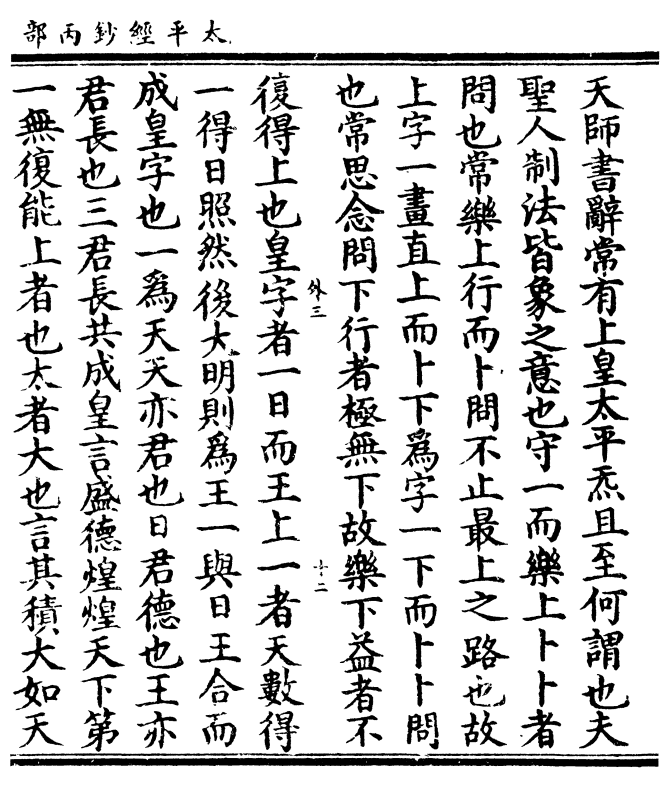 太平經鈔丙部
天師書辭常有上皇太平炁且至何謂也夫
聖人制法皆象之意也守一而樂上卜卜者
問也常樂上行而卜問不止最上之路也故
上字一畫直上而卜下爲字一下而卜卜問
也常思念問下行者極無下故樂下益者不
外三
十二
復得上也皇字者一日而王上一者天數得
一得日照然後大明則爲王一與日王合而
成皇字也一爲天天亦君也日君德也王亦
君長也三君長共成皇言盛德煌煌天下第
一無復能上者也太者大也言其積大如天